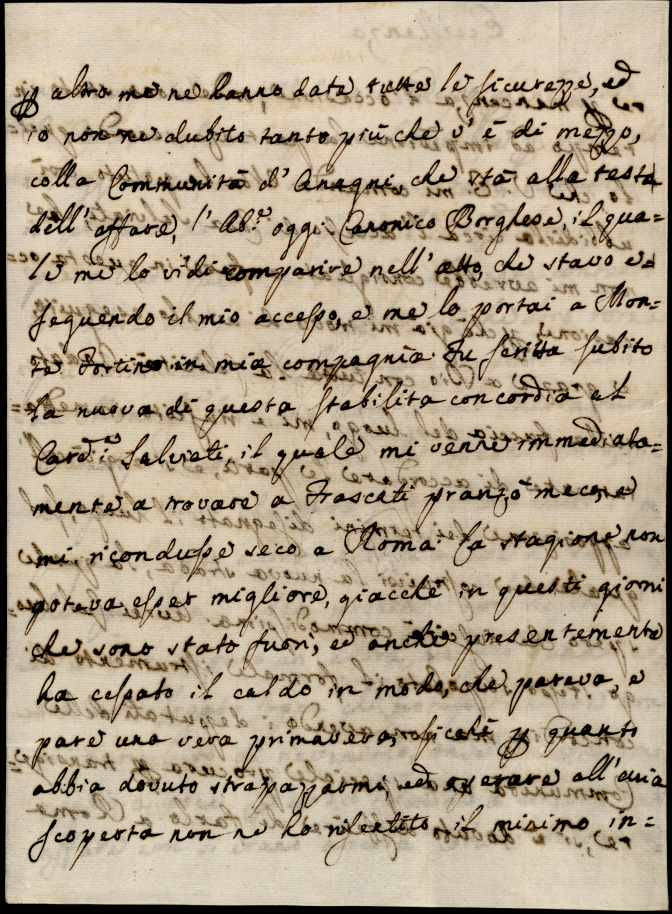 ꝑ altro me ne hanno date tutte le sicurezze, ed
io non ne dubito tanto più che v' è di mezzo,
colla Communità d' Anagni, che stà alla testa
dell' affare, l' Ab.e oggi Canonico Borghese, il qua=
le me lo vidi comparire nell' atto, che stavo e=
seguendo il mio accesso, e me lo portai a Mon=
te Fortino in mia compagnia. Fu scritta subito
la nuova di questa stabilita concordia al
Card. Salviati, il quale mi venne immediata=
mente a trovare a Frascati pranzò meco, e
mi ricondusse seco a Roma. La stagione non
poteva esser migliore, giacchè in questi giorni
che sono stato fuori, ed anche presentemente
ha cessato il caldo in modo, che pareva, e
pare una vera primavera, sicchè ꝑ quanto
abbia dovuto strapazzarmi, ed operare all' aria
scoperta non ne ho risentito il minimo in=